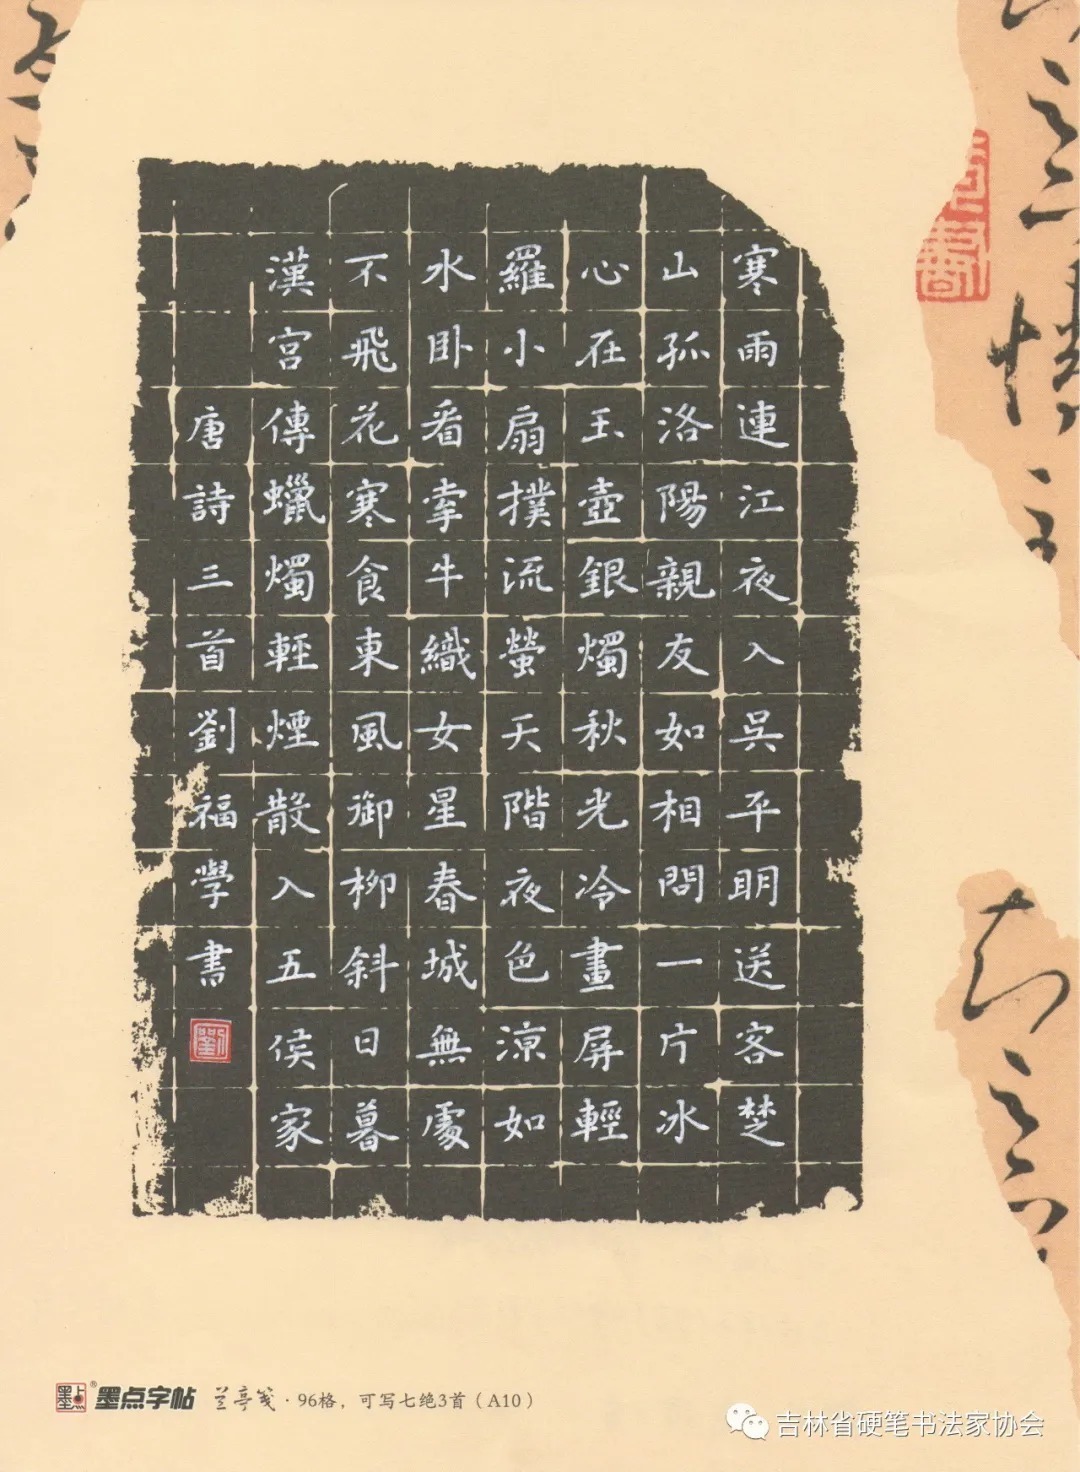 寒雨連江夜入吳平明送客楚
山孤洛陽親友如相問一片冰
心在玉壺銀燭秋光冷畫屏輕
羅小扇撲流螢天階夜色涼如
水卧看牽牛織女星春城無處
不飛花寒食東風御柳斜日暮
漢宮傳蠟燭輕煙散入五侯家
唐詩三首劉福學書
劉
墨点字帖 兰亭笺·96格，可写七绝3首（A10）
吉林省硬笔书法家协会